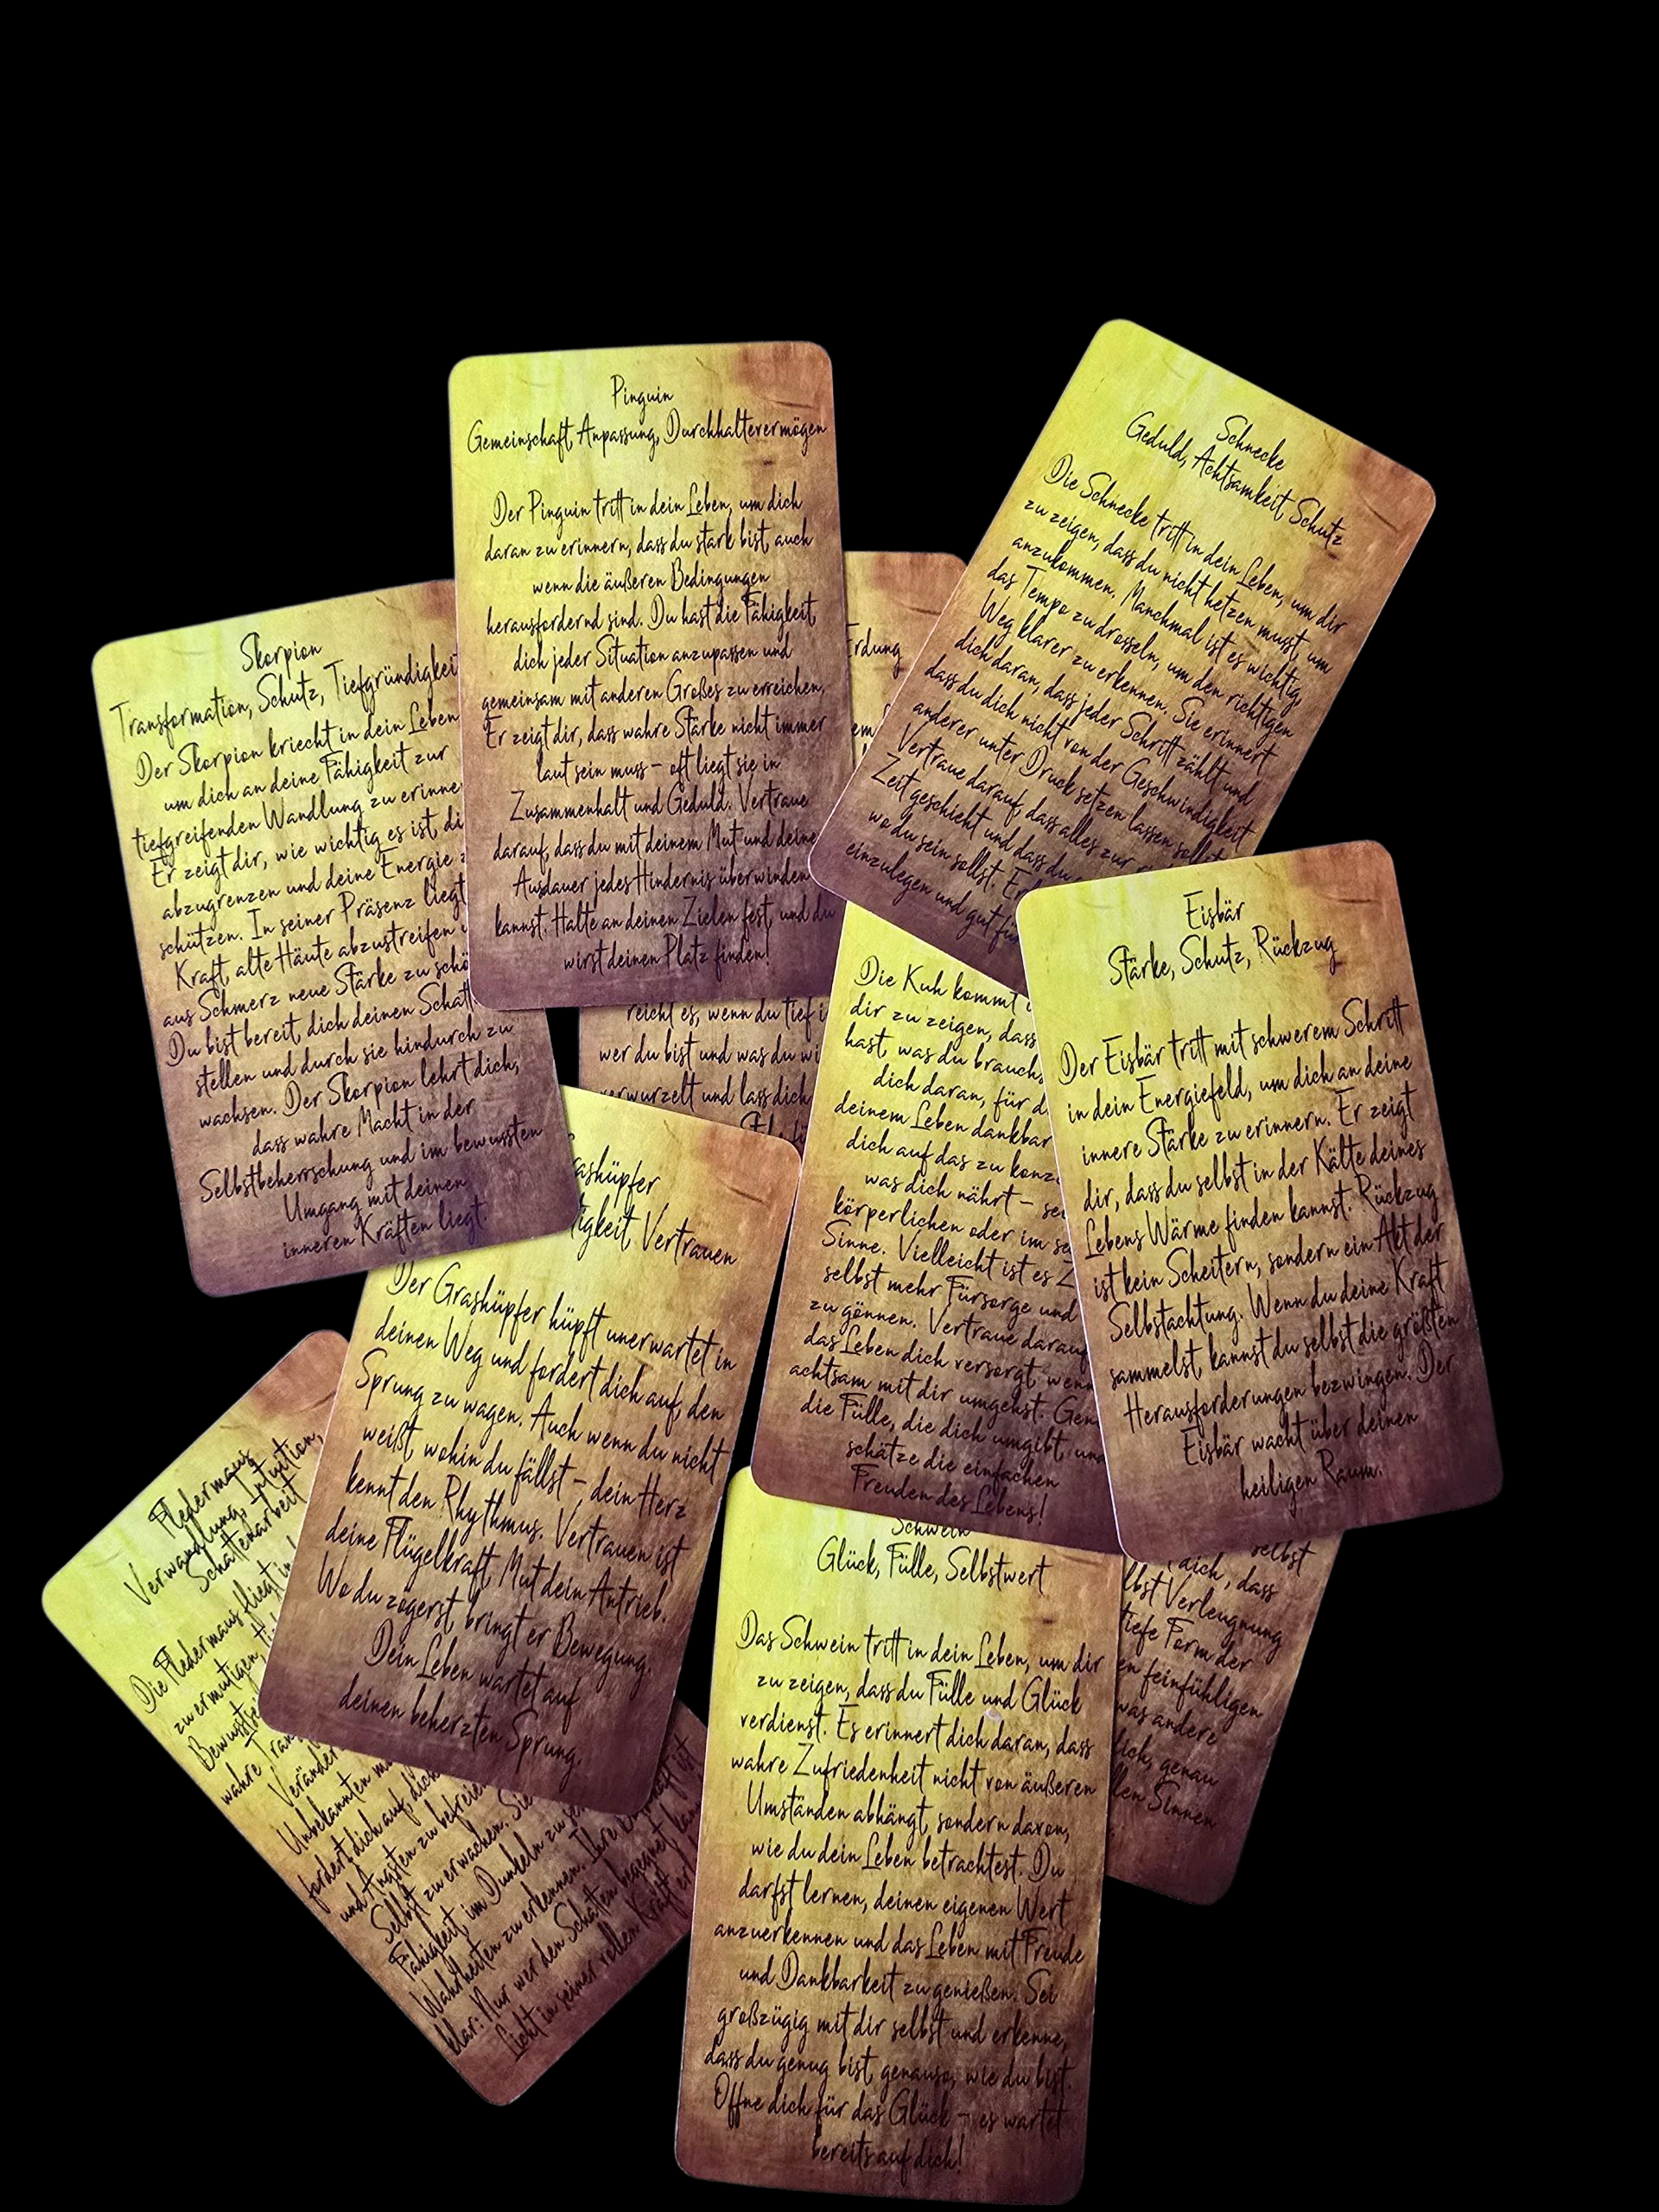 Pinguin
Gemeinschaft, Anpassung, Durchhaltevermögen
Der Pinguin tritt in dein Leben, um dich
daran zu erinnern, dass du stark bist, auch
wenn die äußeren Bedingungen
herausfordernd sind. Du hast die Fähigkeit,
dich jeder Situation anzupassen und
gemeinsam mit anderen Großes zu erreichen.
Er zeigt dir, dass wahre Stärke nicht immer
laut sein muss – oft liegt sie in
Zusammenhalt und Geduld. Vertraue
darauf, dass du mit deinem Mut und deine
Ausdauer jedes Hindernis überwinden
kannst. Halte an deinen Zielen fest, und du
wirst deinen Platz finden!
Schnecke
Geduld, Achtsamkeit, Schutz
Die Schnecke tritt in dein Leben, um dir
zu zeigen, dass du nicht hetzen musst, um
anzukommen. Manchmal ist es wichtig,
das Tempo zu drosseln, um den richtigen
Weg klarer zu erkennen. Sie erinnert
dich daran, dass jeder Schritt zählt und
dass du dich nicht von der Geschwindigkeit
anderer unter Druck setzen lassen sollst.
Vertraue darauf, dass alles zur
Zeit geschieht und dass du
wo du sein sollst.
einzulegen und gut für
Skorpion
Transformation, Schutz, Tiefgründigkeit
Der Skorpion kriecht in dein Leben
um dich an deine Fähigkeit zur
tiefgreifenden Wandlung zu erinne
Er zeigt dir, wie wichtig es ist, di
abzugrenzen und deine Energie z
schützen. In seiner Präsenz liegt
Kraft, alte Häute abzustreifen u
aus Schmerz neue Stärke zu schö
Du bist bereit, dich deinen Schatt
stellen und durch sie hindurch zu
wachsen. Der Skorpion lehrt dich,
dass wahre Macht in der
Selbstbeherrschung und im bewussten
Umgang mit deinen
inneren Kräften liegt.
Erdung
em
reicht es, wenn du tief i
wer du bist und was du wi
verwurzelt und lass dich
Eisbär
Stärke, Schutz, Rückzug
Der Eisbär tritt mit schwerem Schritt
in dein Energiefeld, um dich an deine
innere Stärke zu erinnern. Er zeigt
dir, dass du selbst in der Kälte deines
Lebens Wärme finden kannst. Rückzug
ist kein Scheitern, sondern ein Akt der
Selbstachtung. Wenn du deine Kraft
sammelst, kannst du selbst die größten
Herausforderungen bezwingen. Der
Eisbär wacht über deinen
heiligen Raum.
Die Kuh kommt i
dir zu zeigen, dass
hast, was du brauchs
dich daran, für d
deinem Leben dankbar
dich auf das zu konz
was dich nährt – sei
körperlichen oder im se
Sinne. Vielleicht ist es Z
selbst mehr Fürsorge und
zu gönnen. Vertraue darauf
das Leben dich versorgt, wenn
achtsam mit dir umgehst. Gen
die Fülle, die dich umgibt, und
schätze die einfachen
Freuden des Lebens!
rashüpfer
tigkeit, Vertrauen
Der Grashüpfer hüpft unerwartet in
deinen Weg und fordert dich auf, den
Sprung zu wagen. Auch wenn du nicht
weißt, wohin du fällst – dein Herz
kennt den Rhythmus. Vertrauen ist
deine Flügelkraft, Mut dein Antrieb.
Wo du zögerst, bringt er Bewegung.
Dein Leben wartet auf
deinen beherzten Sprung.
Fledermaus
Verwandlung, Intuition,
Schattenarbeit
Die Fledermaus fliegt in
zu ermutigen,
Bewusstsei
wahre Tran
Veränder
Unbekannten
fordert dich auf, dich
und Ängsten zu befreie
Selbst zu erwachen. Sie
Fähigkeit, im Dunkeln zu se
Wahrheiten zu erkennen. Ihre Botschaft ist
klar: Nur wer den Schatten begegnet, kann
Licht in seiner vollen Kraft er
Schwein
Glück, Fülle, Selbstwert
Das Schwein tritt in dein Leben, um dir
zu zeigen, dass du Fülle und Glück
verdienst. Es erinnert dich daran, dass
wahre Zufriedenheit nicht von äußeren
Umständen abhängt, sondern davon,
wie du dein Leben betrachtest. Du
darfst lernen, deinen eigenen Wert
anzuerkennen und das Leben mit Freude
und Dankbarkeit zu genießen. Sei
großzügig mit dir selbst und erkenne,
dass du genug bist, genauso, wie du bist.
Öffne dich für das Glück – es wartet
bereits auf dich!
selbst
dich, dass
lbst Verleugnung
tiefe Form der
en feinfühligen
was andere
ich, genau
llen Sinnen